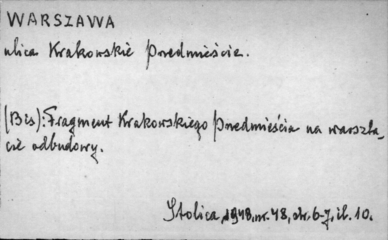 WARSZAWA
ulica Krakowskie Przedmieście.
(Bis): Fragment Krakowskiego Przedmieścia na warszta-
cie odbudowy.
Stolica, 1948, nr. 48, str. 6-7, il. 10.